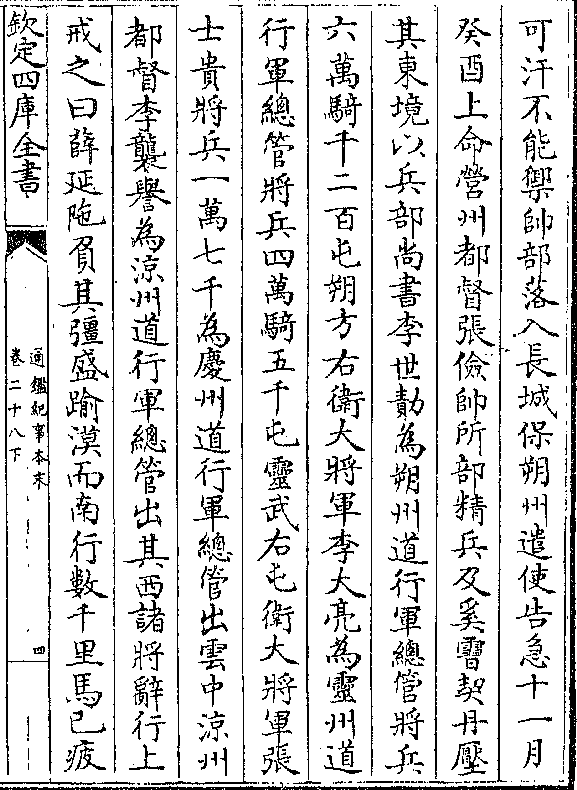 可汗不能禦帥部落入長城保朔州遣使告急十一月
癸酉上命營州都督張儉帥所部精兵及奚霫契丹壓
其東境以兵部尚書李世勣為朔州道行軍總管將兵
六萬騎千二百屯朔方右衛大將軍李大亮為靈州道
行軍總管將兵四萬騎五千屯靈武右屯衛大將軍張
士貴將兵一萬七千為慶州道行軍總管出雲中涼州
都督李襲譽為涼州道行軍總管出其西諸將辭行上
戒之曰薛延陁負其彊盛踰漠而南行數千里馬已疲
欽定四庫全書
通鑑紀事本末
卷二十八下
四